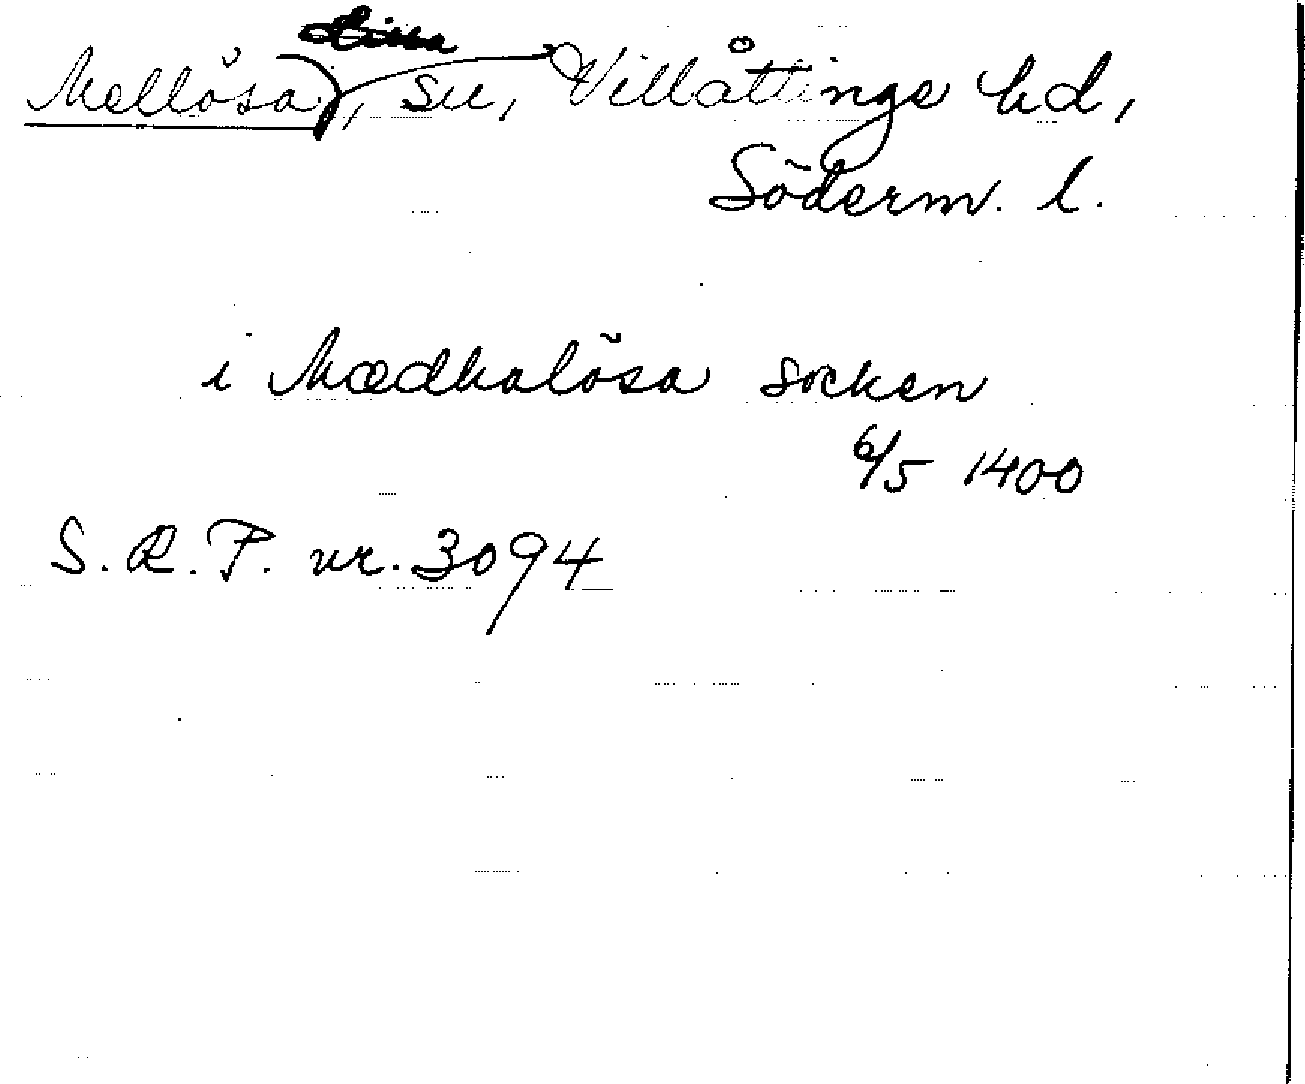 Mellösa, sn, Villåttinge hd,
Söderm. l.
i Mædhalösa socken
6/5 1400
S.R.P. nr. 3094